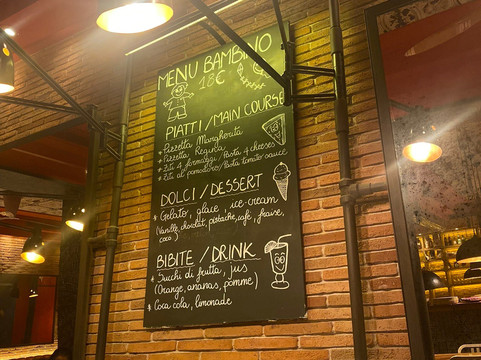 MENU BAMBINO
18€
PIATTI / MAIN COURSE
* Pizzetta Margherita
* Pizzetta Regina
* Ziti 4 formaggi / Pasta 4 cheeses
* Ziti al pomodoro / Pasta tomato sauce
DOLCI / DESSERT
* Gelato, glace, ice-cream
(Vanille, chocolat, pistache, café, fraise,
coco)
BIBITE / DRINK
* Succhi di frutta, jus
(Orange, ananas, pomme)
* Coca cola, limonade